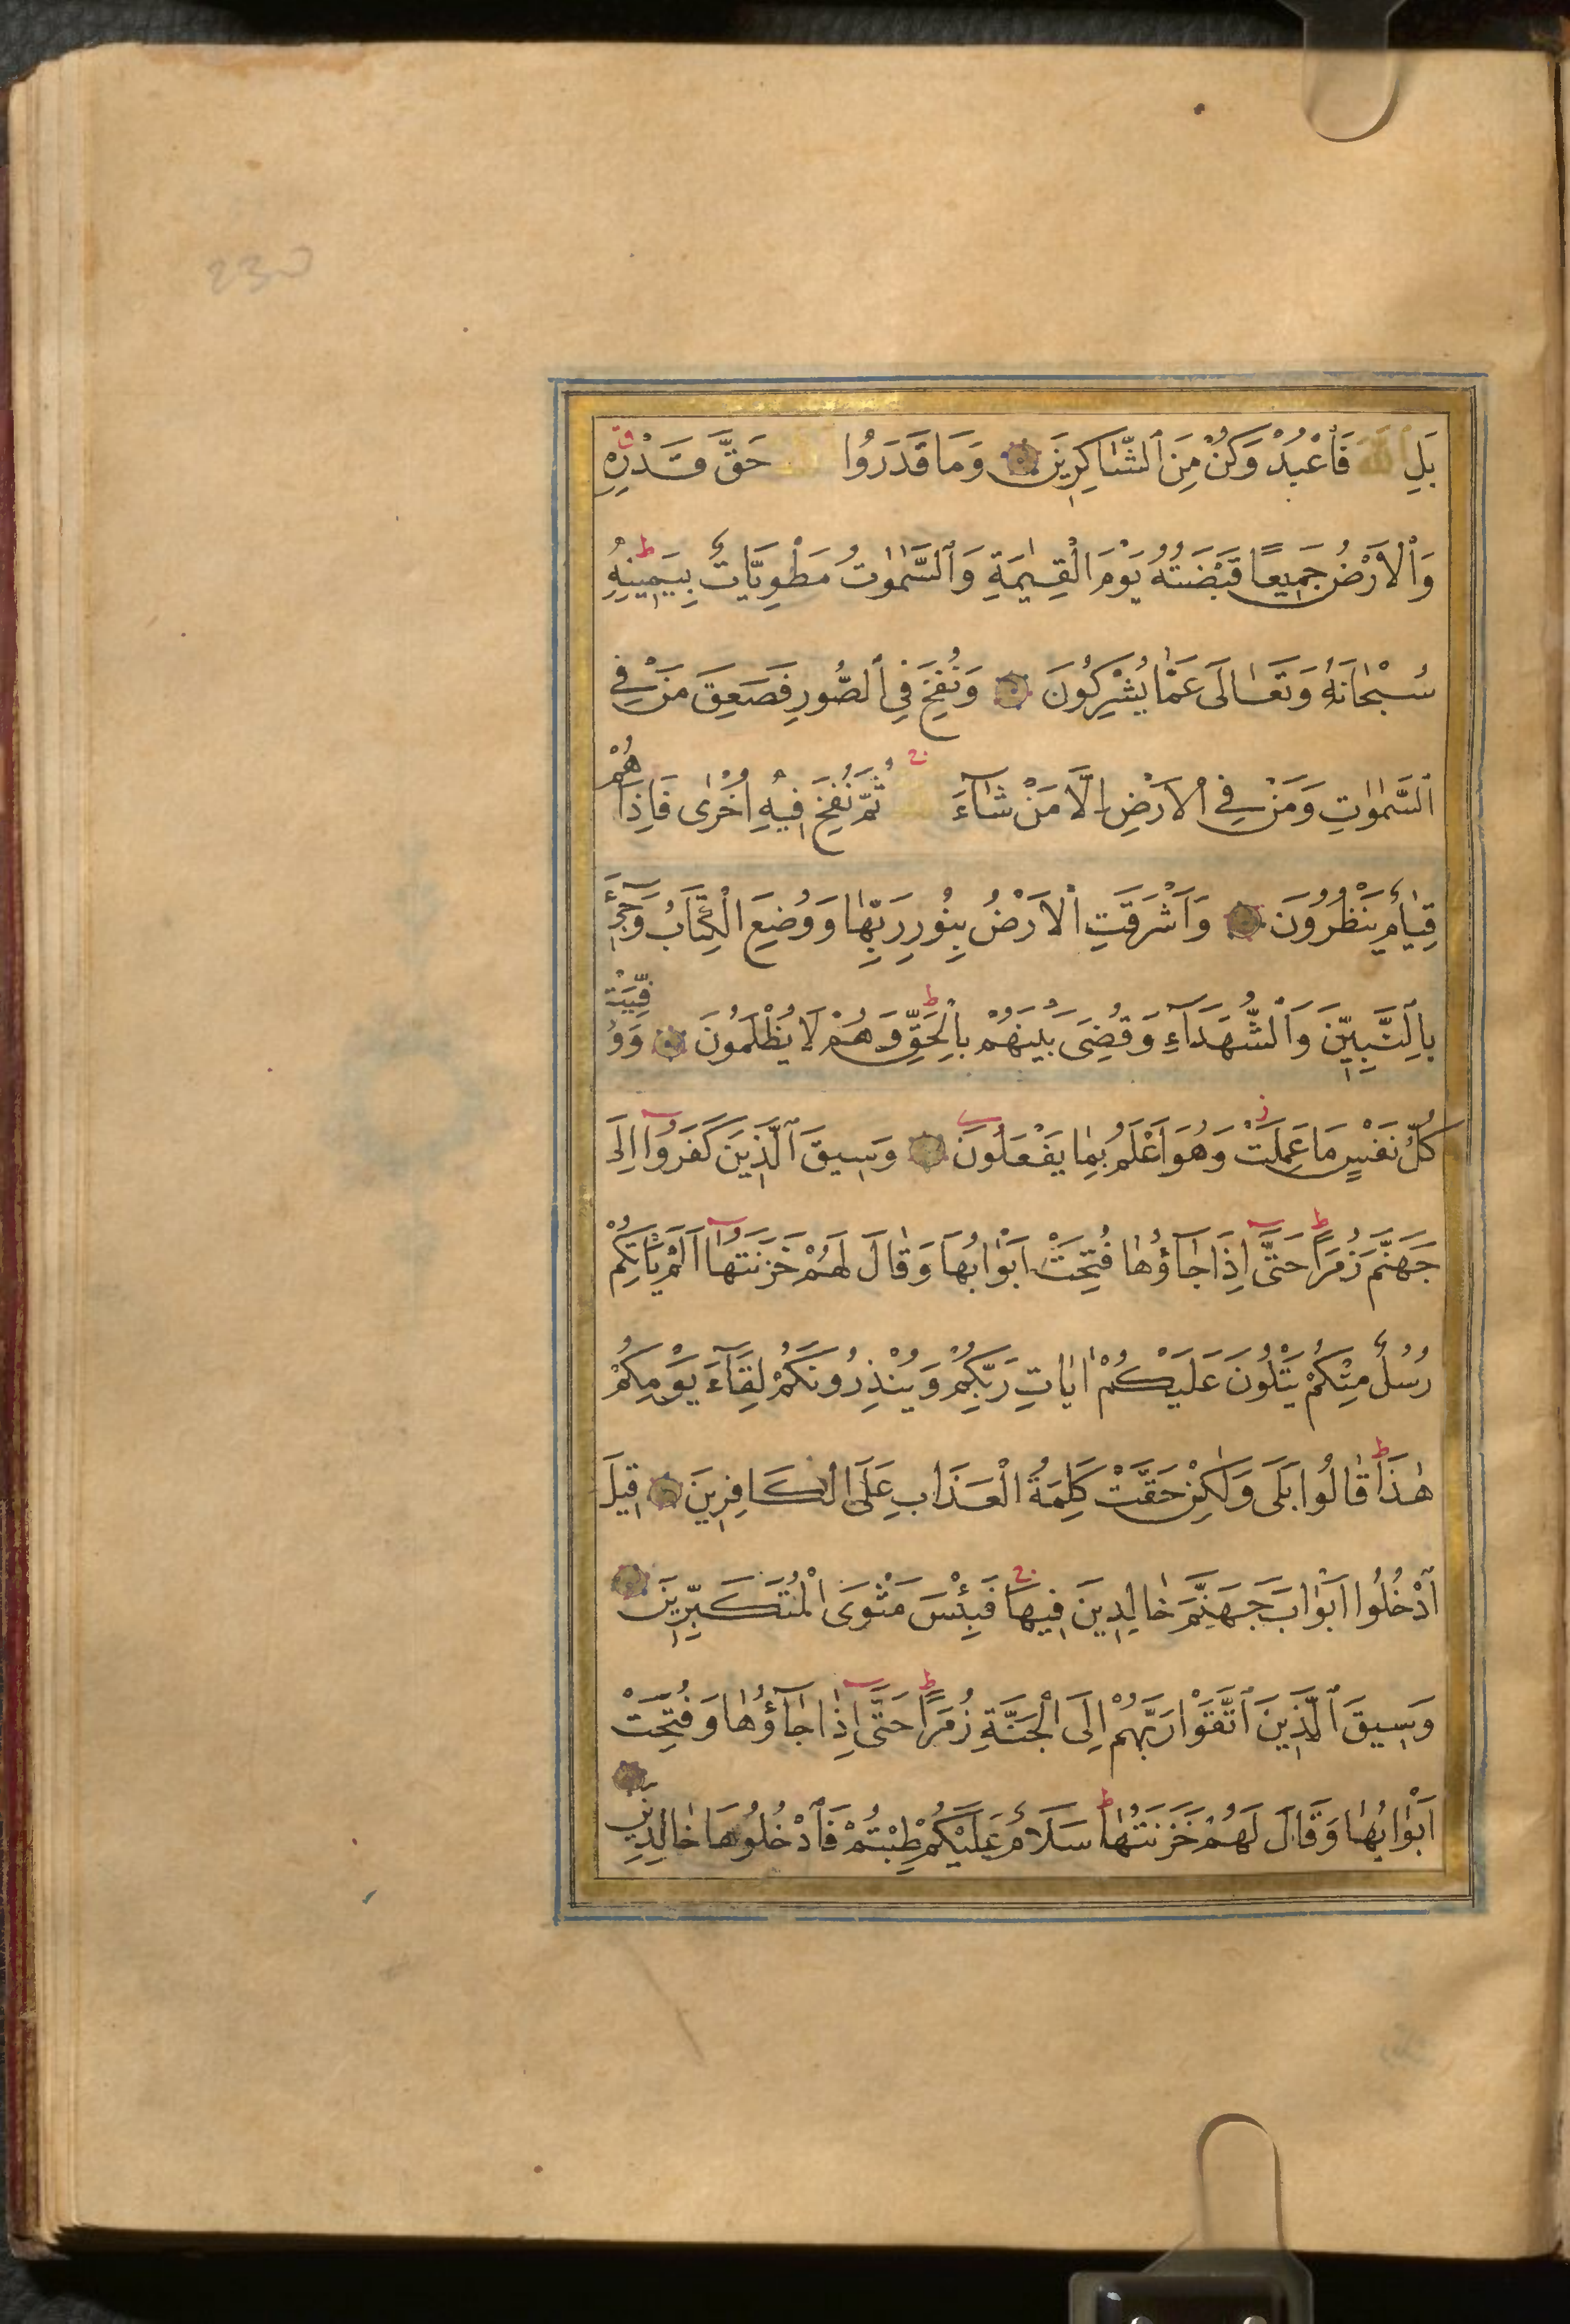 230
بَلِ ٱللّٰهَ فَٱعْبُدْ وَكُنْ مِنَ ٱلشَّاكِرِينَ وَمَا قَدَرُوا ٱللّٰهَ حَقَّ قَدْرِهِ ق
وَٱلْاَرْضُ جَمِيعًا قَبْضَتُهُ يَوْمَ الْقِيٰمَةِ وَٱلسَّمٰوٰتُ مَطْوِيَّاتٌ بِيَمِينِهِ ط
سُبْحَانَهُ وَتَعَالَى عَمَّا يُشْرِكُونَ وَنُفِخَ فِي ٱلصُّورِ فَصَعِقَ مَنْ فِي
ٱلسَّمٰوٰتِ وَمَنْ فِي ٱلْاَرْضِ اِلَّا مَنْ شَآءَ ٱللّٰهُ ثُمَّ نُفِخَ فِيهِ اُخْرٰى فَاِذَا هُمْ
قِيَامٌ يَنْظُرُونَ وَاَشْرَقَتِ ٱلْاَرْضُ بِنُورِ رَبِّهَا وَوُضِعَ الْكِتَابُ وَجِيءَ
بِٱلنَّبِيِّنَ وَٱلشُّهَدَآءِ وَقُضِيَ بَيْنَهُمْ بِٱلْحَقِّ ط وَهُمْ لَا يُظْلَمُونَ وَوُفِّيَتْ
كُلُّ نَفْسٍ مَا عَمِلَتْ وَهُوَ اَعْلَمُ بِمَا يَفْعَلُونَ وَسِيقَ ٱلَّذِينَ كَفَرُوٓا اِلَى
جَهَنَّمَ زُمَرًا ط حَتَّىٓ اِذَا جَآؤُهَا فُتِحَتْ اَبْوَابُهَا وَقَالَ لَهُمْ خَزَنَتُهَآ اَلَمْ يَأْتِكُمْ
رُسُلٌ مِنْكُمْ يَتْلُونَ عَلَيْكُمْ اٰيَاتِ رَبِّكُمْ وَيُنْذِرُونَكُمْ لِقَآءَ يَوْمِكُمْ
هٰذَا ط قَالُوا بَلَى وَلٰكِنْ حَقَّتْ كَلِمَةُ الْعَذَابِ عَلَى الْكَافِرِينَ قِيلَ
ٱدْخُلُوٓا اَبْوَابَ جَهَنَّمَ خَالِدِينَ فِيهَا ج فَبِئْسَ مَثْوَى الْمُتَكَبِّرِينَ
وَسِيقَ ٱلَّذِينَ ٱتَّقَوْا رَبَّهُمْ اِلَى الْجَنَّةِ زُمَرًا ط حَتَّىٓ اِذَا جَآؤُهَا وَفُتِحَتْ
اَبْوَابُهَا وَقَالَ لَهُمْ خَزَنَتُهَا ط سَلَامٌ عَلَيْكُمْ طِبْتُمْ فَٱدْخُلُوهَا خَالِدِينَ